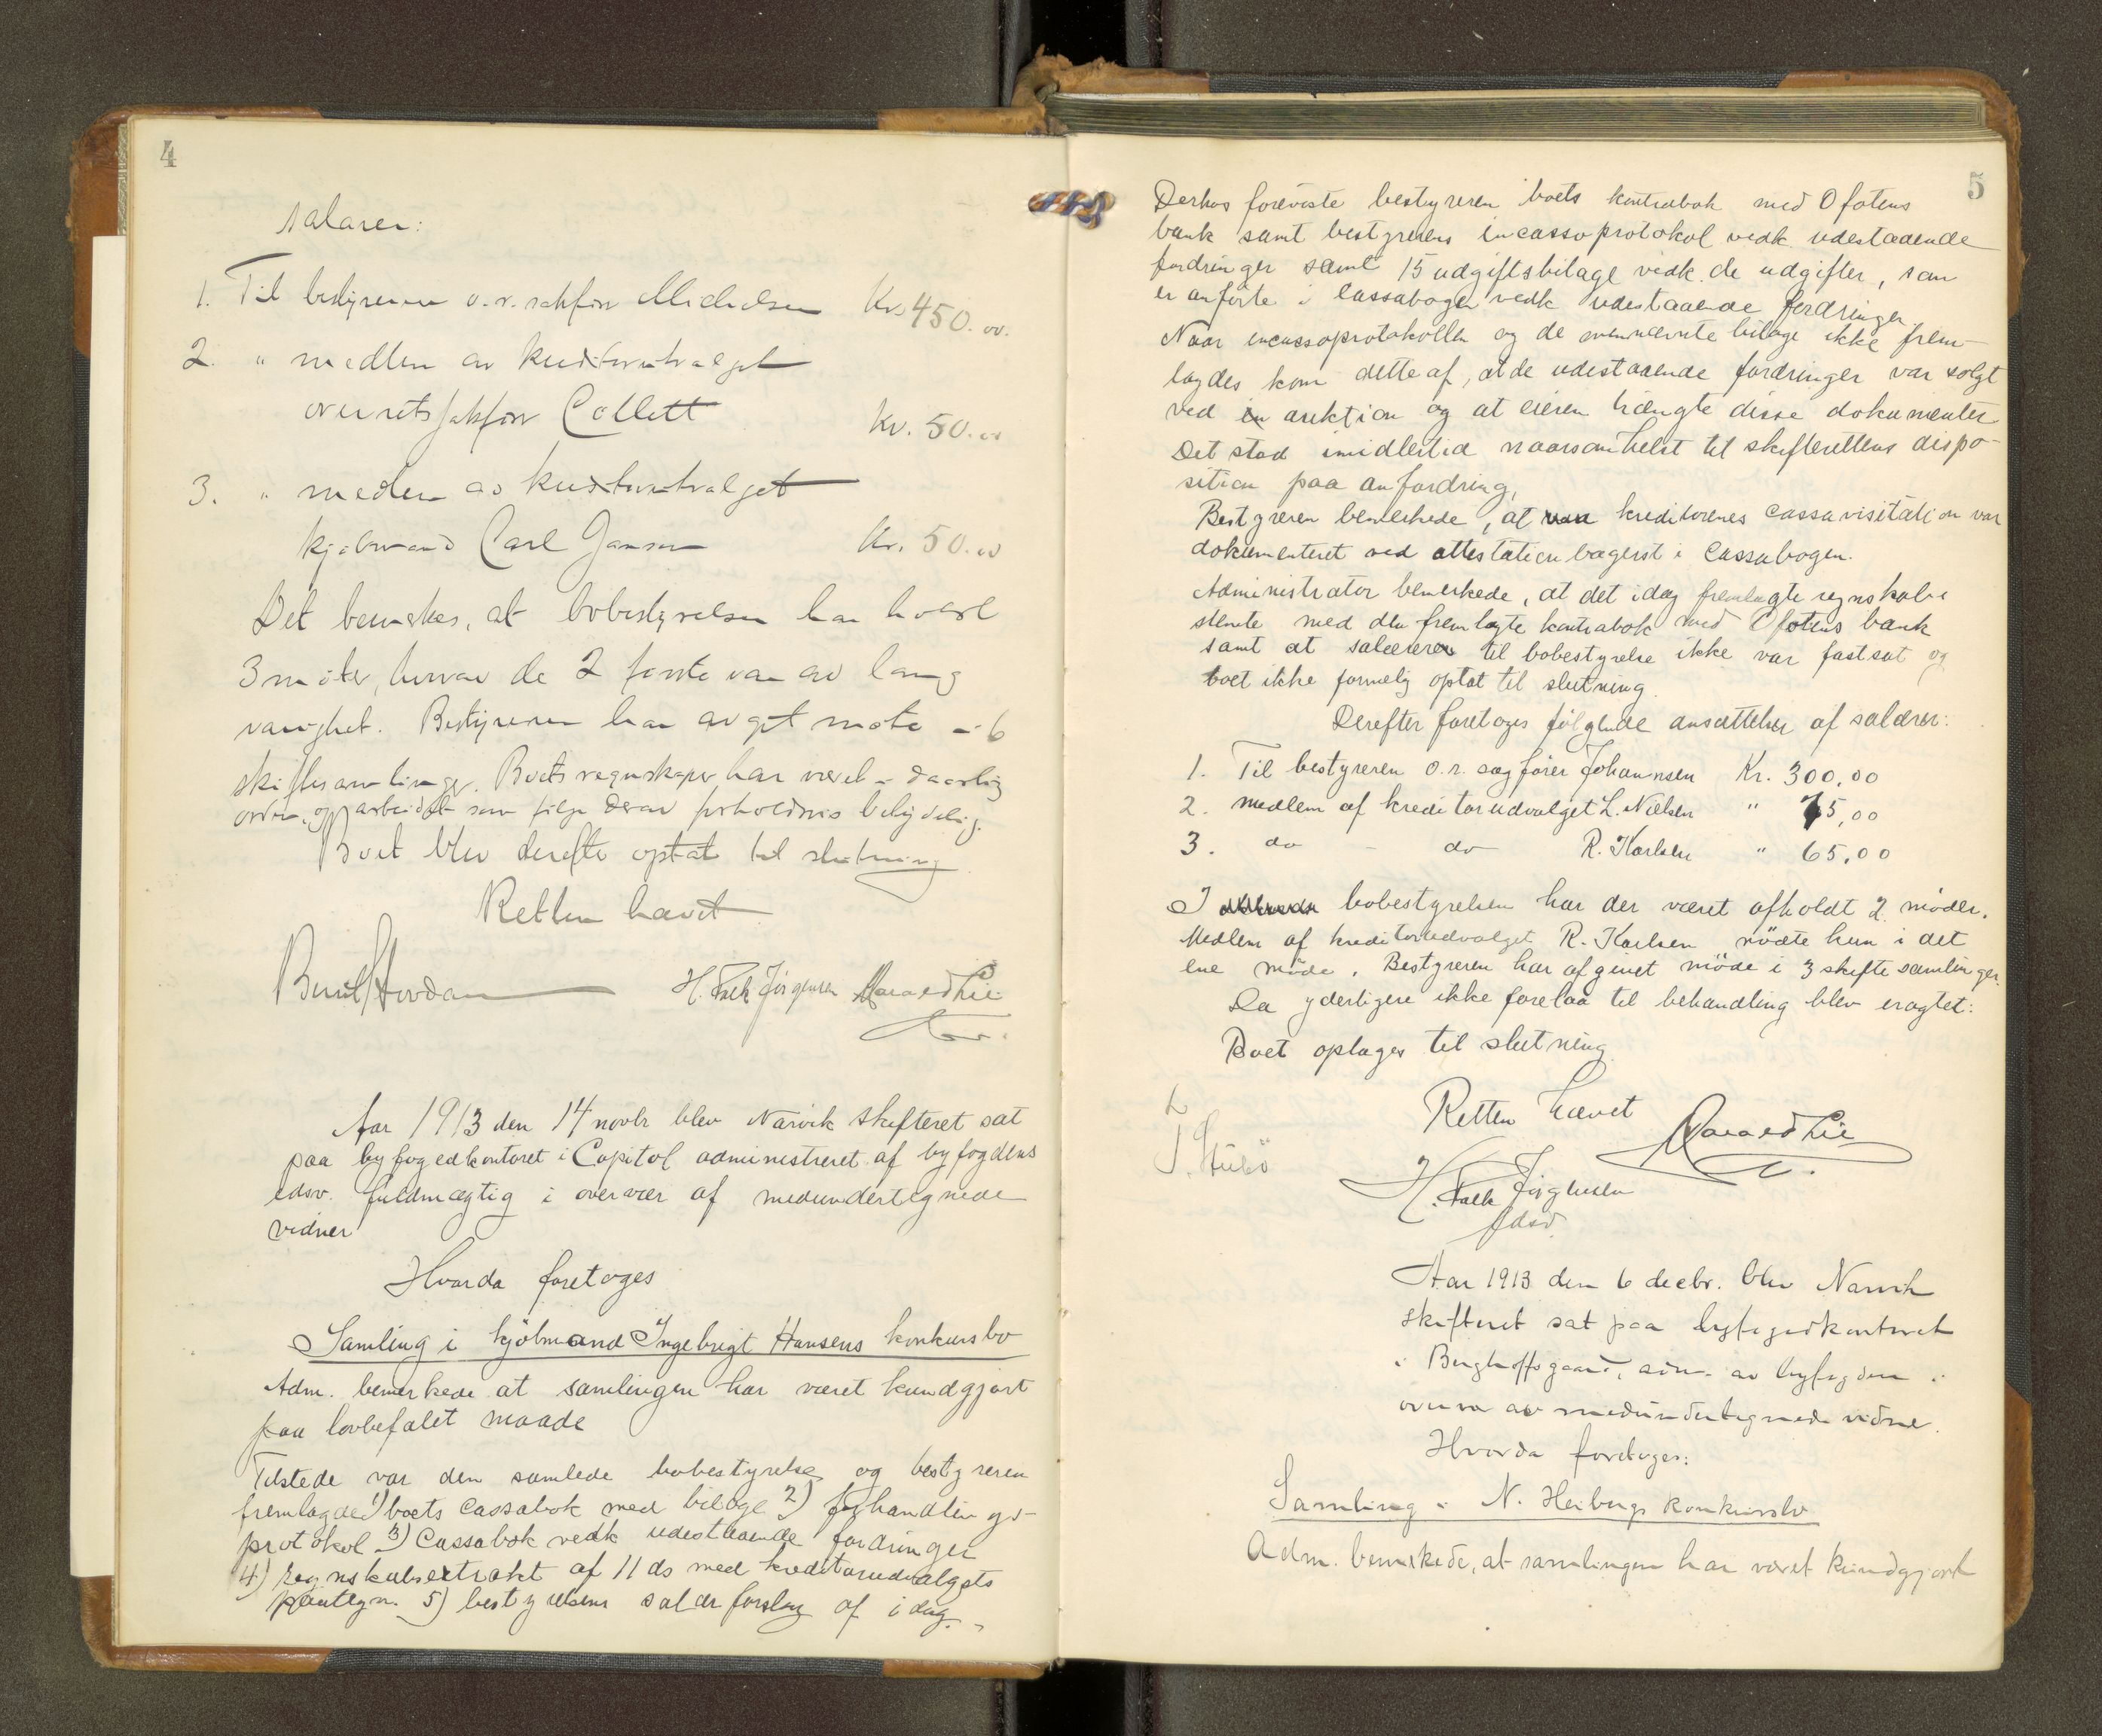 4
salærer:
1. Til bestyreren o.r.sakfør Michelsen Kr. 450.00.
2. " medlem av kreditorutvalget
overretssakfør Collett Kr. 50.00
3. " medlem av kreditorutvalget
kjøbmand Carl Jansen Kr. 50.00
Det bemerkes, at bobestyrelsen har hvert
3 møter, hvorav de 2 første var av lang
varighet. Bestyreren har avgit møte i 6
skiftesamlinger. Boets regnskaper har været i daarlig
orden, og arbeidet som følge derav forholdsvis betydelig.
Boet blev derefter optat til slutning
Retten hævet
H. Falk Jørgensen Harald Lie
Aar 1913 den 14 novbr blev Narvik skifteret sat
paa byfogedkontoret i Capitol administreret af byfogdens
edsv. fuldmægtig i overvær af medundertegnede
vidner
Hvorda foretoges
Samling i kjöbmand Ingebrigt Hansens konkursbo
Adm. bemerkede at samlingen har været kundgjort
paa lovbefalet maade
Tilstede var den samlede bobestyrelse og bestyreren
fremlagde 1) boets cassabok med bilage 2) forhandlings-
protokol 3) Cassabok vedk udestaaende fordringer
4) Regnskabsextrakt af 11 ds med kreditorudvalgets
paategn. 5) bestyrelsens salærforslag af idag.
5
Derhos foreviste bestyreren boets kontrabok med Ofotens
bank samt bestyrerens incassoprotokol vedk. udestaaende
fordringer samt 15 udgiftsbilage vedk. de udgifter, som
er anførte i cassabogen vedk udestaaende fordringer.
Naar incassoprotokollen og de ovennævnte bilage ikke frem-
lagdes kom dette af, at de udestaaende fordringer var solgt
ved en auktion og at eieren trængte disse dokumenter
Det stod imidlertid naarsomhelst til skifterettens dispo-
sition paa anfordring.
Bestyreren bemerkede, at kreditorenes cassavisitation var
dokumenteret ved attestation bagerst i Cassabogen.
Administrator bemerkede, at det idag fremlagte regnskab
stemte med den fremlagte kontrabok med Ofotens bank
samt at salærerer til bobestyrelse ikke var fastsat og
boet ikke formelig optat til slutning.
Derefter foretoges følgende ansættelser af salærer:
1. Til bestyreren o.r. sagfører Johannsen Kr. 300,00
2. medlem af kreditorudvalget L. Nielsen " 75,00
3. do - do R. Karlsen " 65,00
I bobestyrelsen har der været afholdt 2 møder.
Medlem af kreditorudvalget R. Karlsen mödte kun i det
ene møde. Bestyreren har afgivet möde i 3 skiftesamlinger.
Da yderligere ikke forelaa til behandling blev eragtet:
Boet optages til slutning.
Retten hævet
Harald Lie
H. Falk Jørgensen
Aar 1913 den 6 decbr. blev Narvik
skifteret sat paa byfogedkontoret
i Berghoffsgaard, adm. av byfogden i
overvær av medundertegnede vidne.
Hvorda foretoges:
Samling i N. Heibergs konkursbo
Adm. bemerkede, at samlingen har været kundgjort